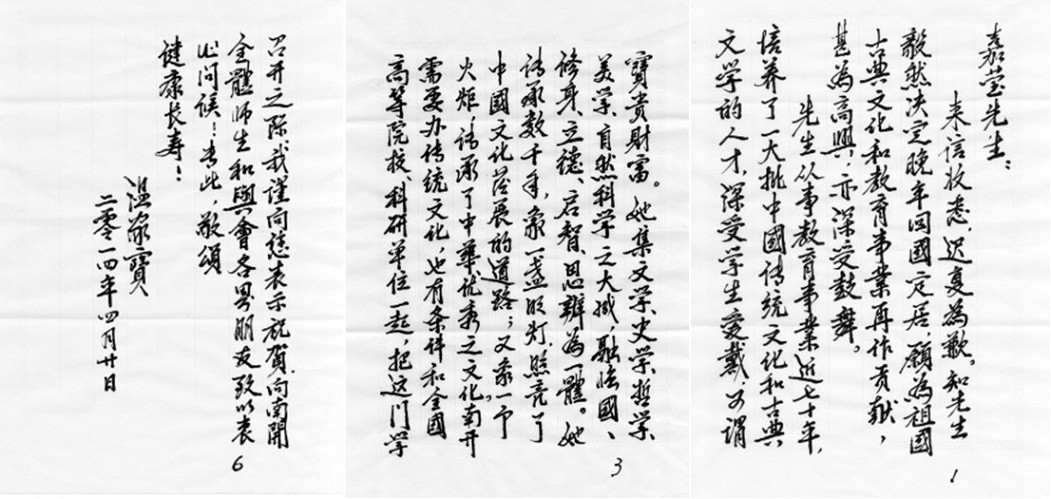 嘉莹先生：
来信收悉，迟复为歉。知先生
毅然决定晚年回國定居，願为祖國
古典文化和教育事業再作贡献，
甚为高興，亦深受鼓舞。
先生从事教育事業近七十年，
培养了一大批中國传统文化和古典
文学的人才，深受学生爱戴，可谓
1
寶贵財富。她集文学、史学、哲学、
美学、自然科学之大成，融國、
修身、立德、启智、思辨为一體。她
传承数千年，象一盏明灯，照亮了
中國文化发展的道路；又象一
火炬，传承了中華优秀之文化。南开
需要办传统文化，也有条件和全國
高等院校、科研单位一起，把这门学
3
召开之际，我谨向您表示祝贺，向南開
全體师生和與會各界朋友致以衷
心问候！专此，敬颂
健康长寿！
温家寶
二零一四年四月廿日
6